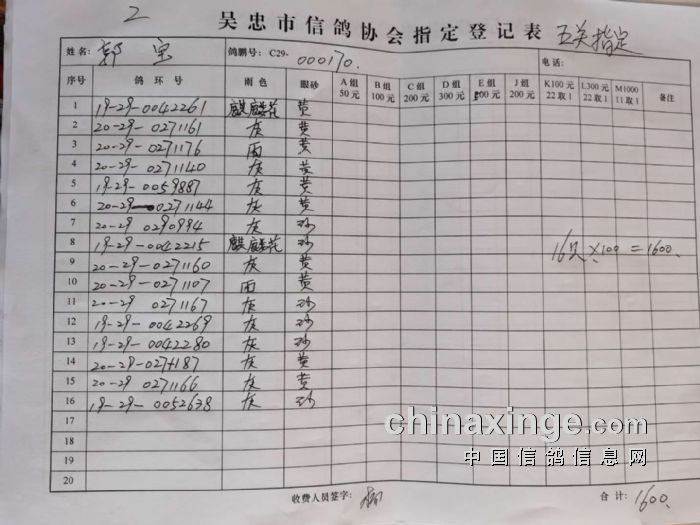 2
吴忠市信鸽协会指定登记表 五关指定
姓名: 郭宝 鸽鹏号: C29- 000170. 电话:
序号 鸽环号 雨色 眼砂 A组 50元 B组 100元 C组 200元 D组 300元 E组 500元 J组 200元 K100元 22取1 L300元 22取1 M1000 11取1 备注
1 19-29-0042261 麒麟花 黄
2 20-29-0271161 灰 黄
3 20-29-0271176 雨 黄
4 20-29-0271140 灰 黄
5 19-29-0059887 灰 黄
6 20-29-0271144 灰 黄
7 20-29 0290994 灰 砂
8 19-29-0042215 麒麟花 砂 16只×100=1600.
9 20-29-0271160 灰 黄
10 20-29-0271107 雨 黄
11 20-29 0271167 灰 砂
12 19-29-0042269 灰 砂
13 19-29-0042280 灰 砂
14 20-29-0271187 灰 黄
15 20-29 0271166 灰 黄
16 19-29-0052638 灰 砂
17
18
19
20
收费人员签字: 合计: 1600.
chinaxinge.com
中国信鸽信息网